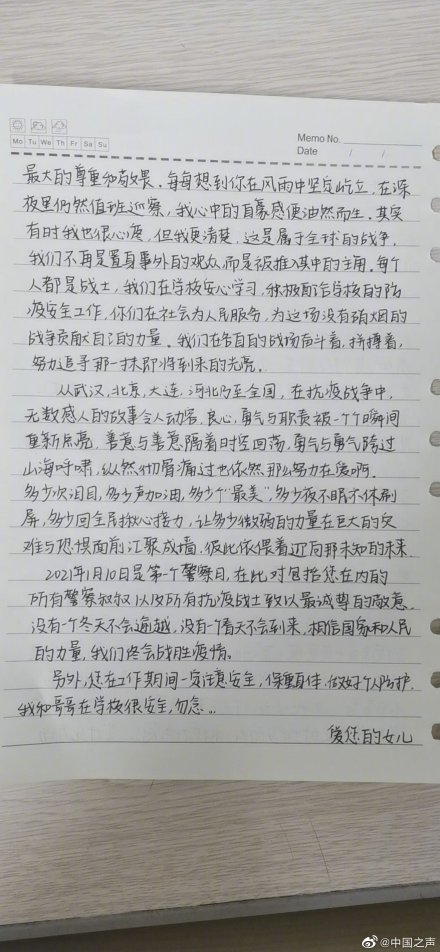 Memo No.
Mo Tu We Th Fr Sa Su
Date / /
最大的尊重和敬畏。每每想到你在风雨中坚定屹立,在深
夜里仍然值班巡察,我心中的自豪感便油然而生。其实
有时我也很心疼,但我更清楚,这是属于全球的战争,
我们不再是置身事外的观众而是被推入其中的主角。每个
人都是战士,我们在学校安心学习,积极配合学校的防
疫安全工作,你们在社会为人民服务,为这场没有硝烟的
战争贡献自己的力量。我们在各自的战场奋斗着,拼搏着,
努力追寻那一抹即将到来的光亮。
从武汉,北京,大连,河北乃至全国,在抗疫战争中,
无数感人的故事令人动容,良心,勇气与职责被一个个瞬间
重新点亮,善意与善意隔着时空回荡,勇气与勇气跨过
山海呼啸,纵然切肤痛过也依然那么努力在爱啊。
多少次泪目,多少声加油,多少个“最美”,多少夜不眠不休刷
屏,多少回全民揪心接力,让多少微弱的力量在巨大的灾
难与恐惧面前汇聚成墙,彼此依偎着迈向那未知的未来。
2021年1月10日是第一个警察日,在此对包括您在内的
所有警察叔叔以及所有抗疫战士致以最诚尊的敬意。
没有一个冬天不会逾越,没有一个春天不会到来,相信国家和人民
的力量,我们终会战胜疫情。
另外,您在工作期间一定注意安全,保重身体,做好个人防护,
我和哥哥在学校很安全,勿念...
爱您的女儿
@中国之声